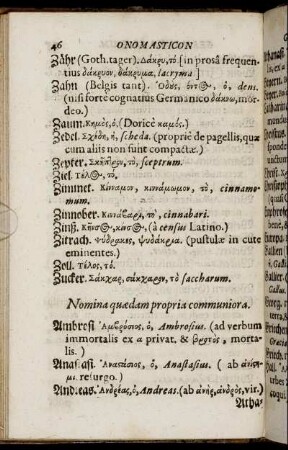 46 ONOMASTICON
Zähr (Goth. tager). Δάκρυ, τό. [in prosâ frequen-
tius δάκρυον, δάκρυμα, lacryma]
Zahn (Belgis tant). Ὀδοὺς, όντ@-, ὁ, dens.
(nisi forte cognatius Germanico δάκνω, mor-
deo.)
Zaum. Κημὸς, ὁ. (Doricè καμός.)
Zedel. Σχέδη, ἡ, scheda. (propriè de pagellis, quæ
cum aliis non sunt compactæ.)
Zepter. Σκῆπτρον, τὸ, sceptrum.
Ziel. Τέλ@-, τὸ.
Zimmet. Κίναμον, κινάμωμον, τὸ, cinnamo-
mum.
Zinnober. Κιννάβαρι, τὸ, cinnabari.
Zinß. Κῆνσ@-, (à census Latino.)
Zitrach. Ψύδρακες, ψυδάκρια. (pustulæ in cute
eminentes.)
Zoll. Τέλος, τό.
Zucker. Σάκχαρ, σάκχαρον, τὸ saccharum.
Nomina quædam propria communiora.
Ambresi Ἀμβρόσιος, ὁ, Ambrosius. (ad verbum
immortalis ex α privat. & βροτὸς, morta-
lis.)
Anastasi. Ἀναστάσιος, ὁ, Anastasius. (ab ἀνίση-
μι resurgo.)
Andreas. Ἀνδρέας, ὁ, Andreas. (ab ἀνὴρ, ἀνδρὸς, vir.)
Atha-